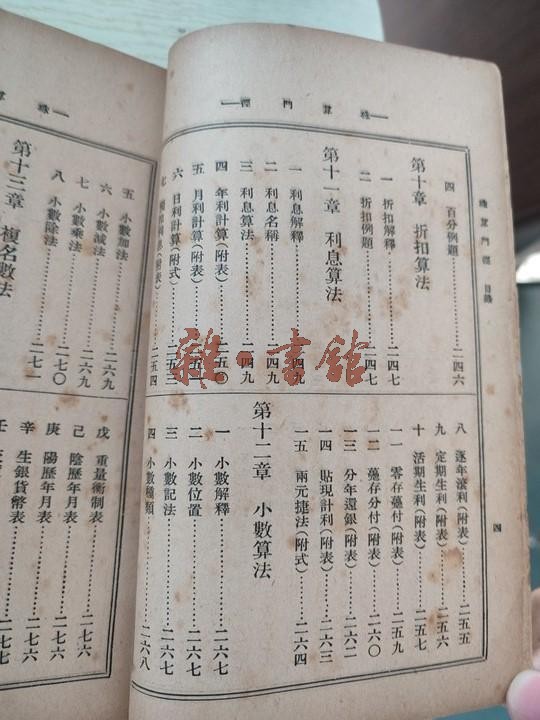 珠算門徑
珠算門徑 目錄
四
四 百分例題……二四六
第十章 折扣算法
一 折扣解釋……二四七
二 折扣例題……二四七
第十一章 利息算法
一 利息解釋……二四九
二 利息名稱……二四九
三 利息算法……二四九
四 年利計算(附表)……二五〇
五 月利計算(附表)
六 日利計算(附式)……二五三
七
利息(附表)……二五四
八 逐年滾利(附表)……二五五
九 定期生利(附表)……二五六
十 活期生利(附表)……二五七
一一 零存躉付(附表)……二五九
一二 躉存分付(附表)……二六〇
一三 分年還銀(附表)……二六二
一四 貼現計利(附表)……二六三
一五 兩元捷法(附式)……二六四
第十二章 小數算法
一 小數解釋……二六七
二 小數位置……二六七
三 小數記法……二六七
四 小數種類……二六八
珠算
五 小數加法……二六九
六 小數減法……二六九
七 小數乘法……二七〇
八 小數除法……二七一
第十三章 複名數法
戊 重量衡制表……二七六
己 陰歷年月表……二七六
庚 陽歷年月表……二七六
辛 生銀貨幣表……二七七
壬
雜·書館